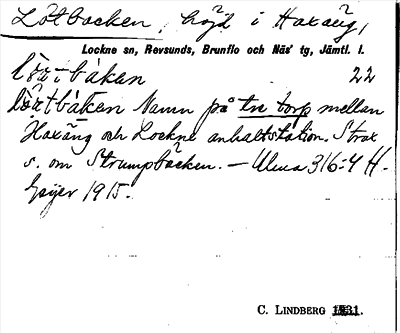 Lötbacken, höjd i Haxäng,
Lockne sn, Revsunds, Brunflo och Näs' tg, Jämtl. l.
lörtbáken 22
lôrtbáken Namn på tre torp mellan
Haxäng och Lockne anhaltstation. Strax
s. om Strumpbacken. — Ulma 316:4 H.
Geijer 1915.
C. LINDBERG 1931.